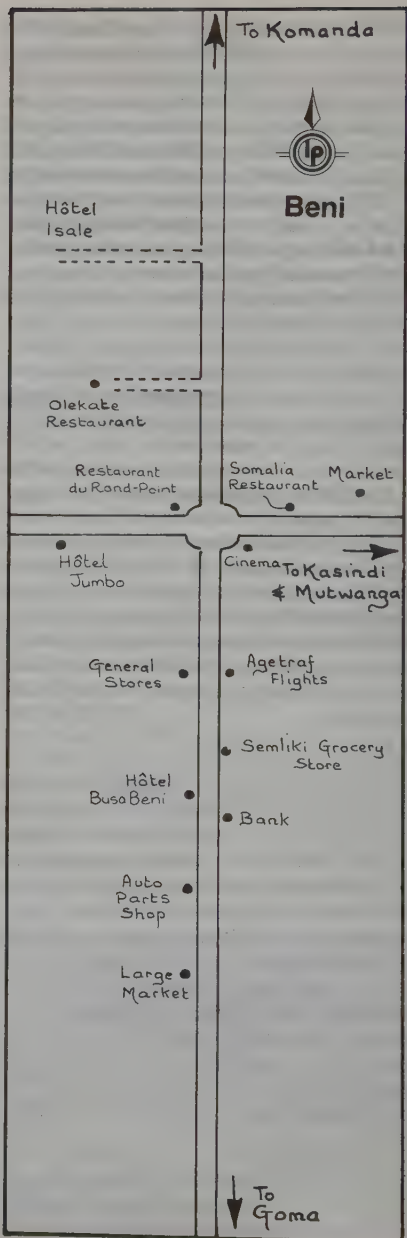 To Komanda
lp
Beni
Hôtel
Isale
Olekate
Restaurant
Restaurant
du Rond-Point
Somalia
Restaurant
Market
Hôtel
Jumbo
Cinema
To Kasindi
& Mutwanga
General
Stores
Agetraf
Flights
Semliki Grocery
Store
Hôtel
Busa Beni
Bank
Auto
Parts
Shop
Large
Market
To
Goma